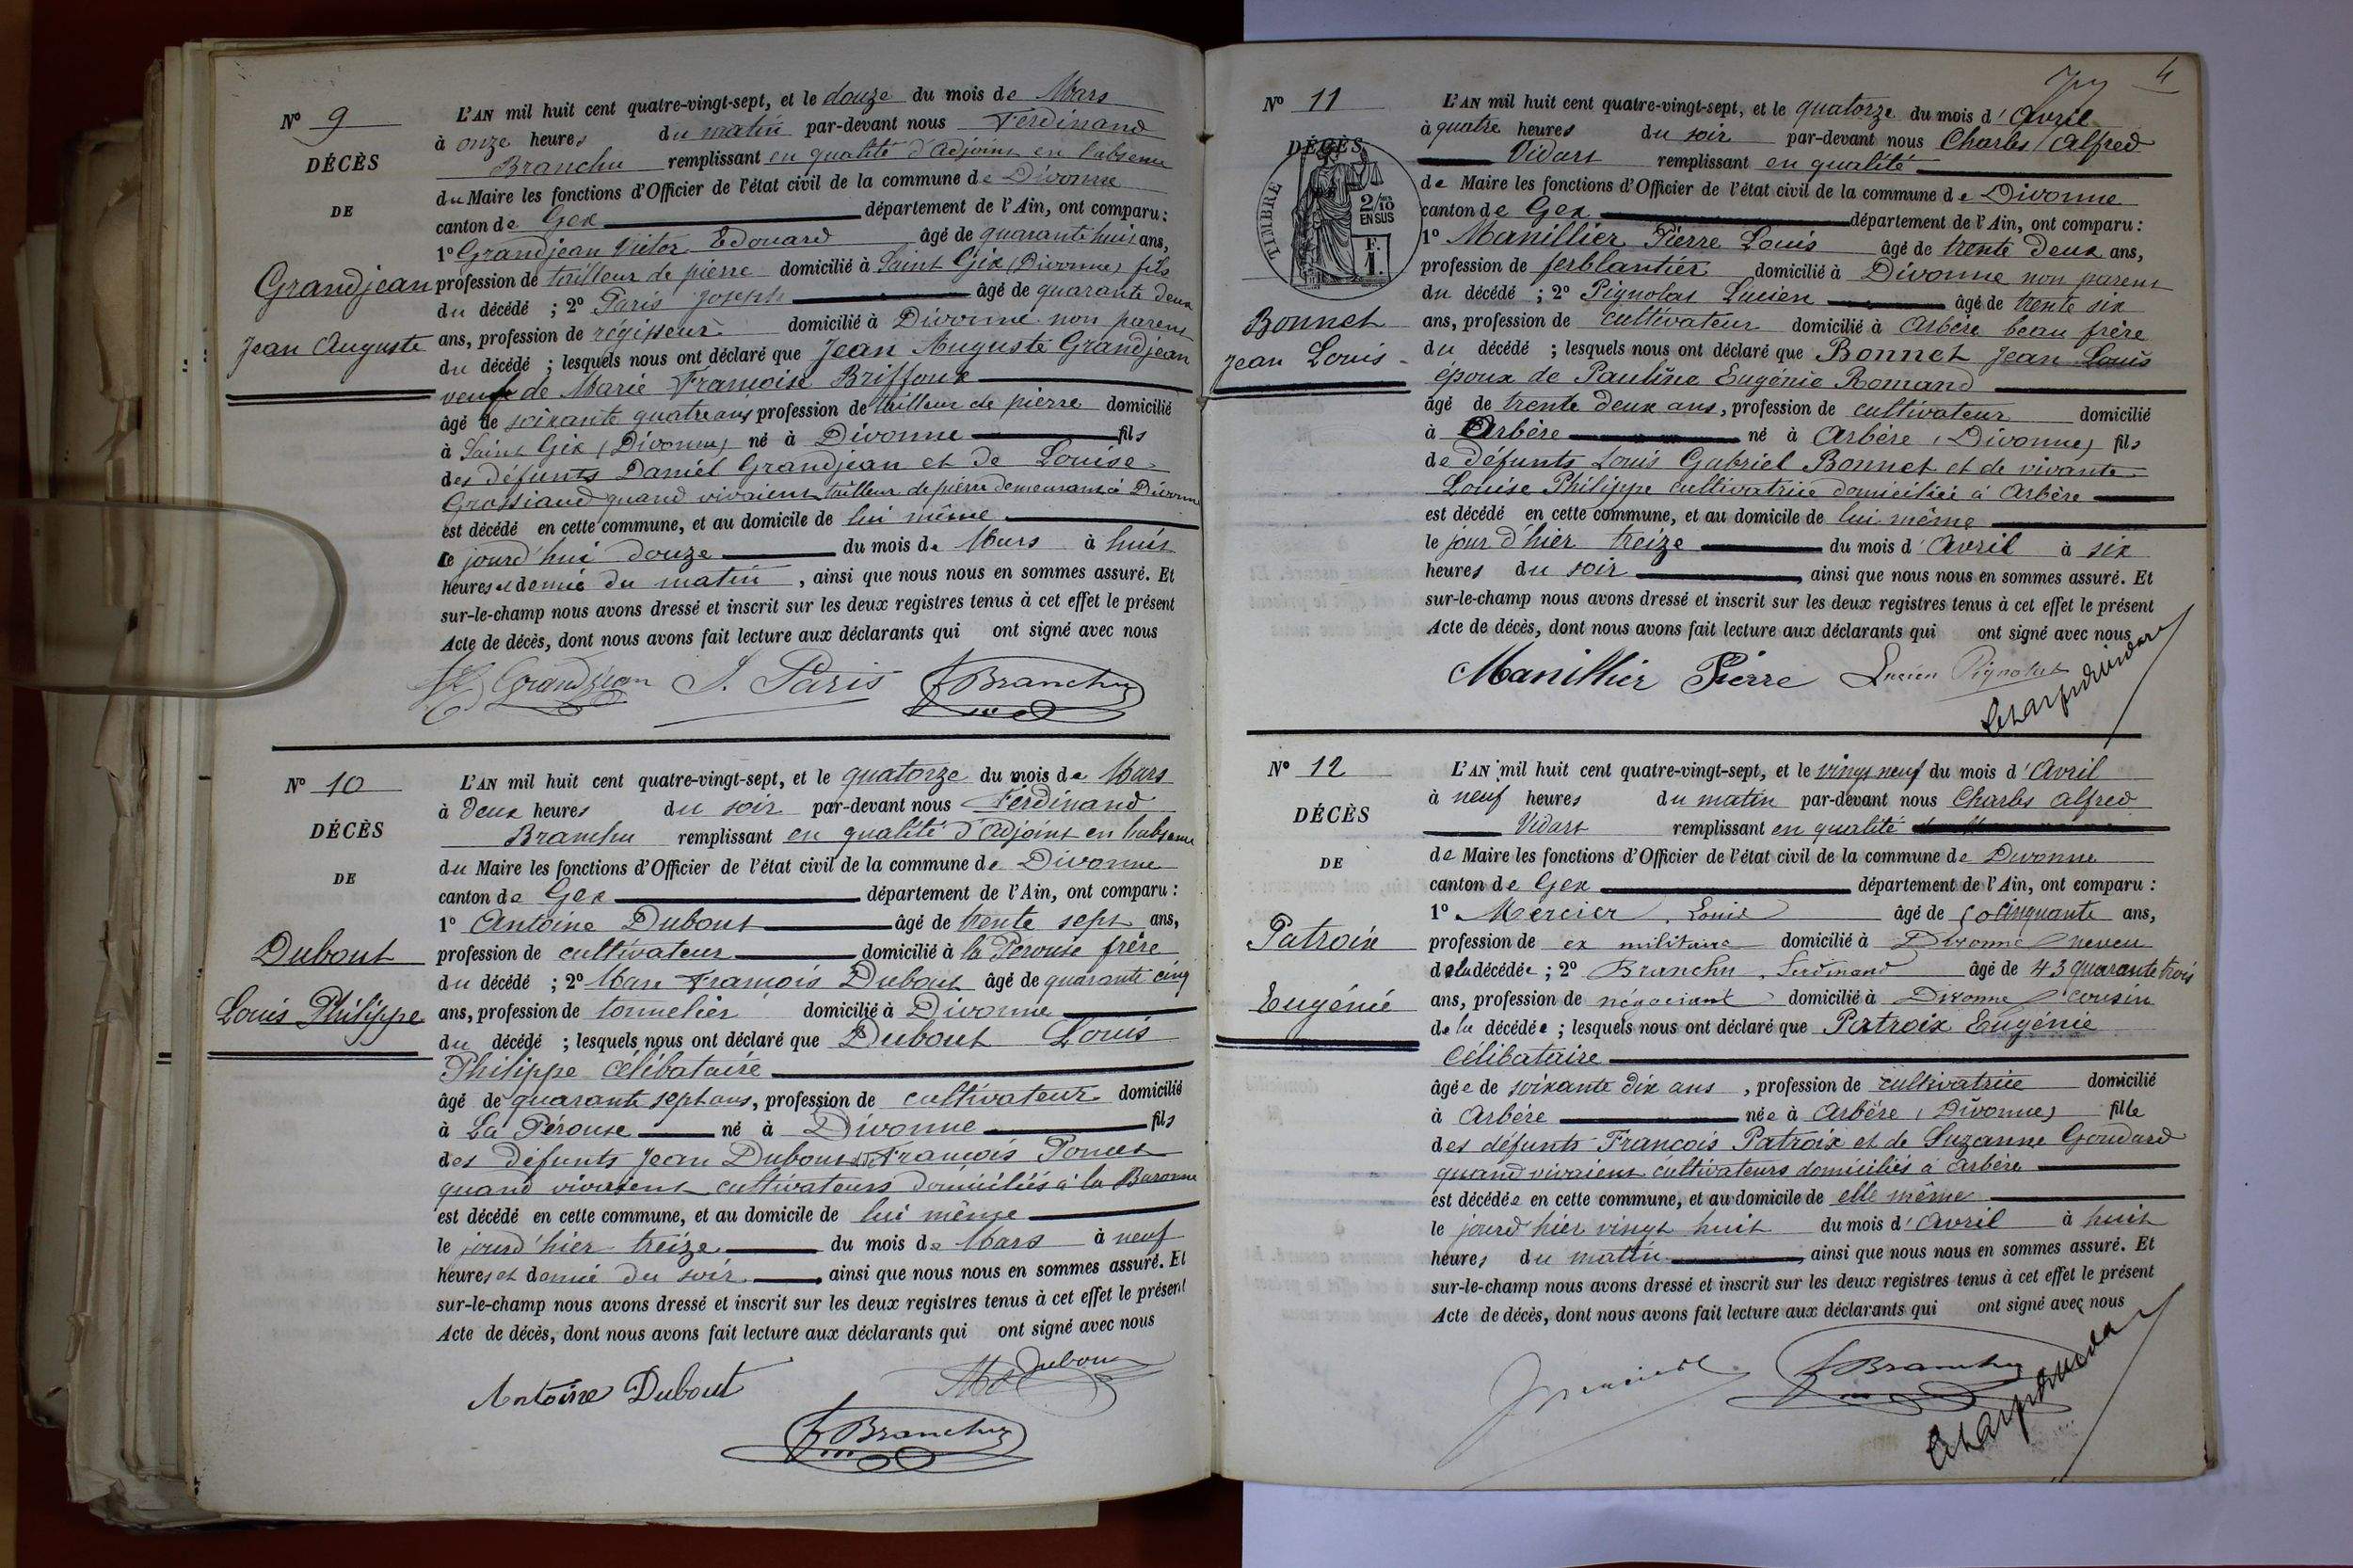 N° 9
DÉCÈS
DE
Grandjean
Jean Auguste
L'AN mil huit cent quatre-vingt-sept, et le douze du mois de Mars
à onze heures du matin par-devant nous Ferdinand
Branchu remplissant en qualité d'adjoint en l'absence
du Maire les fonctions d'Officier de l'état civil de la commune de Divonne
canton de Gex département de l'Ain, ont comparu :
1° Grandjean Victor Edouard âgé de quarante huit ans,
profession de tailleur de pierre domicilié à Saint Gix (Divonne) fils
du décédé ; 2° Paris Joseph âgé de quarante deux
ans, profession de régisseur domicilié à Divonne non parent
du décédé ; lesquels nous ont déclaré que Jean Auguste Grandjean
veuf de Marie Françoise Briffoux
âgé de soixante quatre ans, profession de tailleur de pierre domicilié
à Saint Gix (Divonne) né à Divonne fils
des défunts Daniel Grandjean et de Louise
Grossiaud quand vivaient tailleur de pierre demeurant à Divonne
est décédé en cette commune, et au domicile de lui même
ce jourd'hui douze du mois de Mars à huit
heures et demie du matin, ainsi que nous nous en sommes assuré. Et
sur-le-champ nous avons dressé et inscrit sur les deux registres tenus à cet effet le présent
Acte de décès, dont nous avons fait lecture aux déclarants qui ont signé avec nous
Grandjean J. Paris F Branchu
N° 10
DÉCÈS
DE
Dubout
Louis Philippe
L'AN mil huit cent quatre-vingt-sept, et le quatorze du mois de Mars
à deux heures du soir par-devant nous Ferdinand
Branchu remplissant en qualité d'adjoint en l'absence
du Maire les fonctions d'Officier de l'état civil de la commune de Divonne
canton de Gex département de l'Ain, ont comparu :
1° Antoine Dubout âgé de trente sept ans,
profession de cultivateur domicilié à la Pérouse frère
du décédé ; 2° Marc François Dubout âgé de quarante cinq
ans, profession de tonnelier domicilié à Divonne
du décédé ; lesquels nous ont déclaré que Dubout Louis
Philippe célibataire
âgé de quarante sept ans, profession de cultivateur domicilié
à La Pérouse né à Divonne fils
des défunts Jean Dubout et François Poncet
quand vivaient cultivateurs domiciliés à la
est décédé en cette commune, et au domicile de lui même
le jour d'hier treize du mois de Mars à neuf
heures et demie du soir, ainsi que nous nous en sommes assuré. Et
sur-le-champ nous avons dressé et inscrit sur les deux registres tenus à cet effet le présent
Acte de décès, dont nous avons fait lecture aux déclarants qui ont signé avec nous
Antoine Dubout Dubout
F Branchu
4
N° 11
DÉCÈS
TIMBRE
2/10
EN SUS
F.
1.
Bonnet
Jean Louis
L'AN mil huit cent quatre-vingt-sept, et le quatorze du mois d'Avril
à quatre heures du soir par-devant nous Charles Alfred
Vidart remplissant en qualité
de Maire les fonctions d'Officier de l'état civil de la commune de Divonne
canton de Gex département de l'Ain, ont comparu :
1° Manillier Pierre Louis âgé de trente deux ans,
profession de ferblantier domicilié à Divonne non parent
du décédé ; 2° Pignolat Lucien âgé de trente six
ans, profession de cultivateur domicilié à Arbère beau frère
du décédé ; lesquels nous ont déclaré que Bonnet Jean Louis
époux de Pauline Eugénie Romand
âgé de trente deux ans, profession de cultivateur domicilié
à Arbère né à Arbère (Divonne) fils
de défunts Louis Gabriel Bonnet et de vivante
Louise Philippe cultivatrice domiciliée à Arbère
est décédé en cette commune, et au domicile de lui même
le jour d'hier treize du mois d'Avril à six
heures du soir, ainsi que nous nous en sommes assuré. Et
sur-le-champ nous avons dressé et inscrit sur les deux registres tenus à cet effet le présent
Acte de décès, dont nous avons fait lecture aux déclarants qui ont signé avec nous
Manillier Pierre Lucien Pignolat
N° 12
DÉCÈS
DE
Patroix
Eugénie
L'AN mil huit cent quatre-vingt-sept, et le vingt neuf du mois d'Avril
à neuf heures du matin par-devant nous Charles Alfred
Vidart remplissant en qualité
de Maire les fonctions d'Officier de l'état civil de la commune de Divonne
canton de Gex département de l'Ain, ont comparu :
1° Mercier Louis âgé de 50 cinquante ans,
profession de ex militaire domicilié à Divonne neveu
de la décédée ; 2° Branchu Ferdinand âgé de 43 quarante trois
ans, profession de négociant domicilié à Divonne cousin
de la décédée ; lesquels nous ont déclaré que Patroix Eugénie
célibataire
âgée de soixante dix ans, profession de cultivatrice domicilié
à Arbère née à Arbère (Divonne) fille
des défunts François Patroix et de Suzanne Goudard
quand vivaient cultivateurs domiciliés à Arbère
est décédée en cette commune, et au domicile de elle même
le jour d'hier vingt huit du mois d'Avril à huit
heures du matin, ainsi que nous nous en sommes assuré. Et
sur-le-champ nous avons dressé et inscrit sur les deux registres tenus à cet effet le présent
Acte de décès, dont nous avons fait lecture aux déclarants qui ont signé avec nous
F Branchu